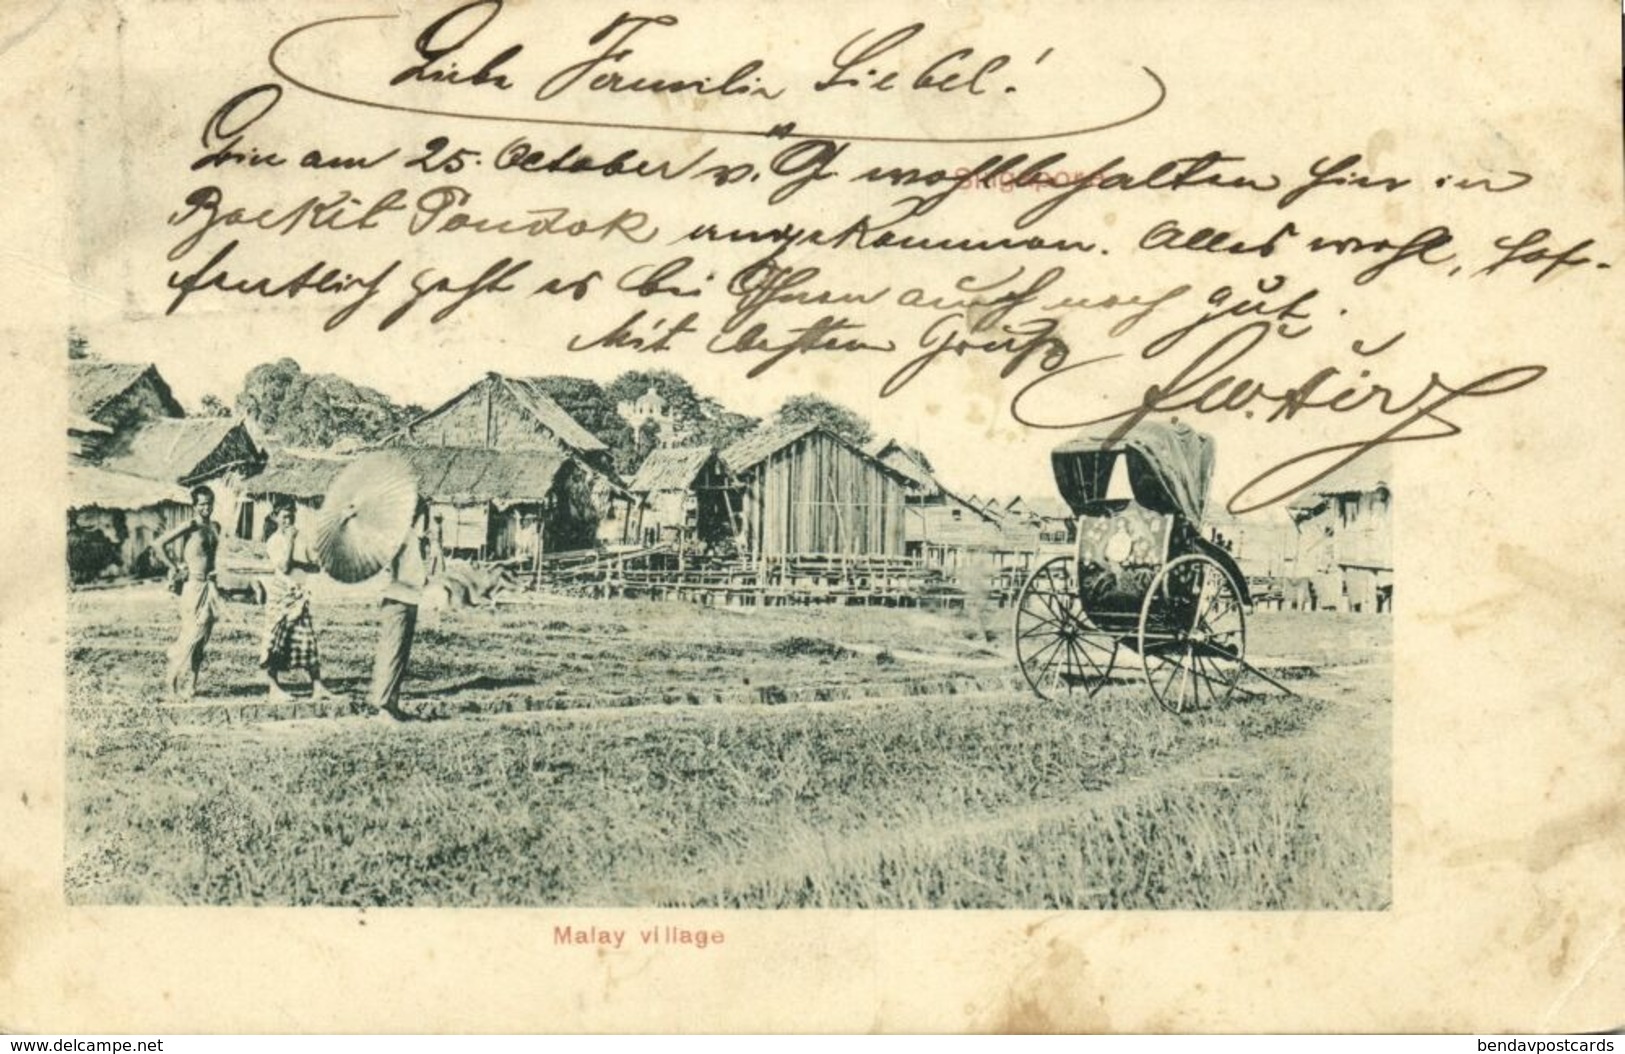 Liebe Familie Siebel!
Bin am 25. October v. J. wohlbehalten hier in
Singapore
Boekit Pondok angekommen. Alles wohl, hof-
fentlich geht es bei Ihnen auch noch gut.
Mit besten Gruß
Malay village
www.delcampe.net
bendavpostcards